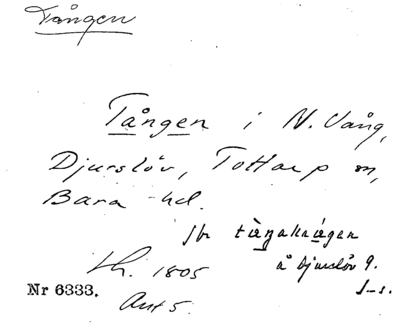 Tången
Tången i N. Vång,
Djurslöv, Tottarp m,
Bara hd.
jfr
å Djurslöv 9.
Lh. 1805
Nr 6333.
Akt 5.
J-s.